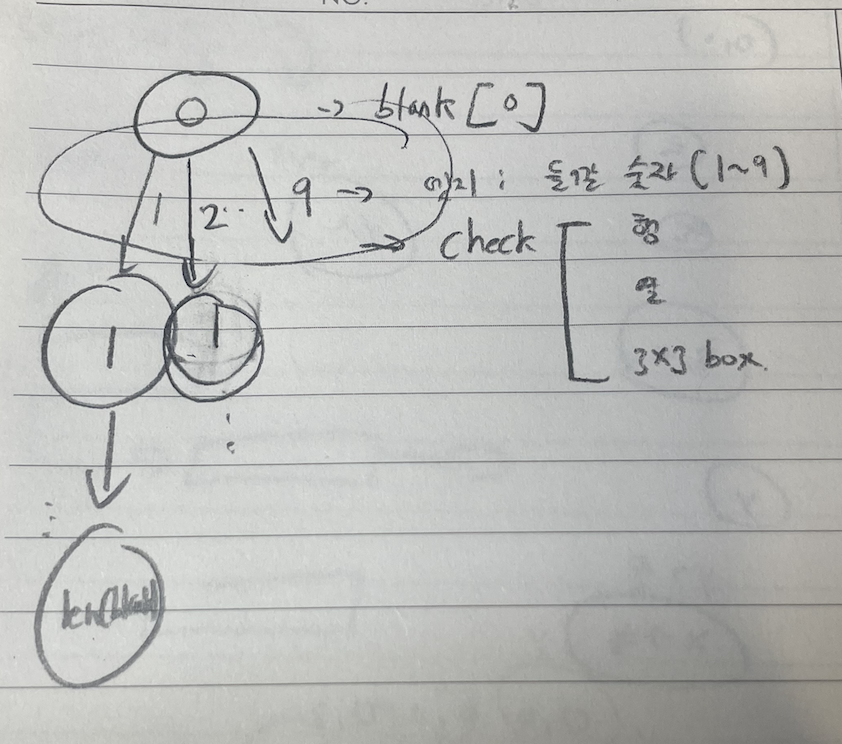 NO.
0 → blank[0]
1 2·· 9 → 가지 : 들어갈 숫자(1~9)
check
행
열
3×3 box.
1 1
len(blank)